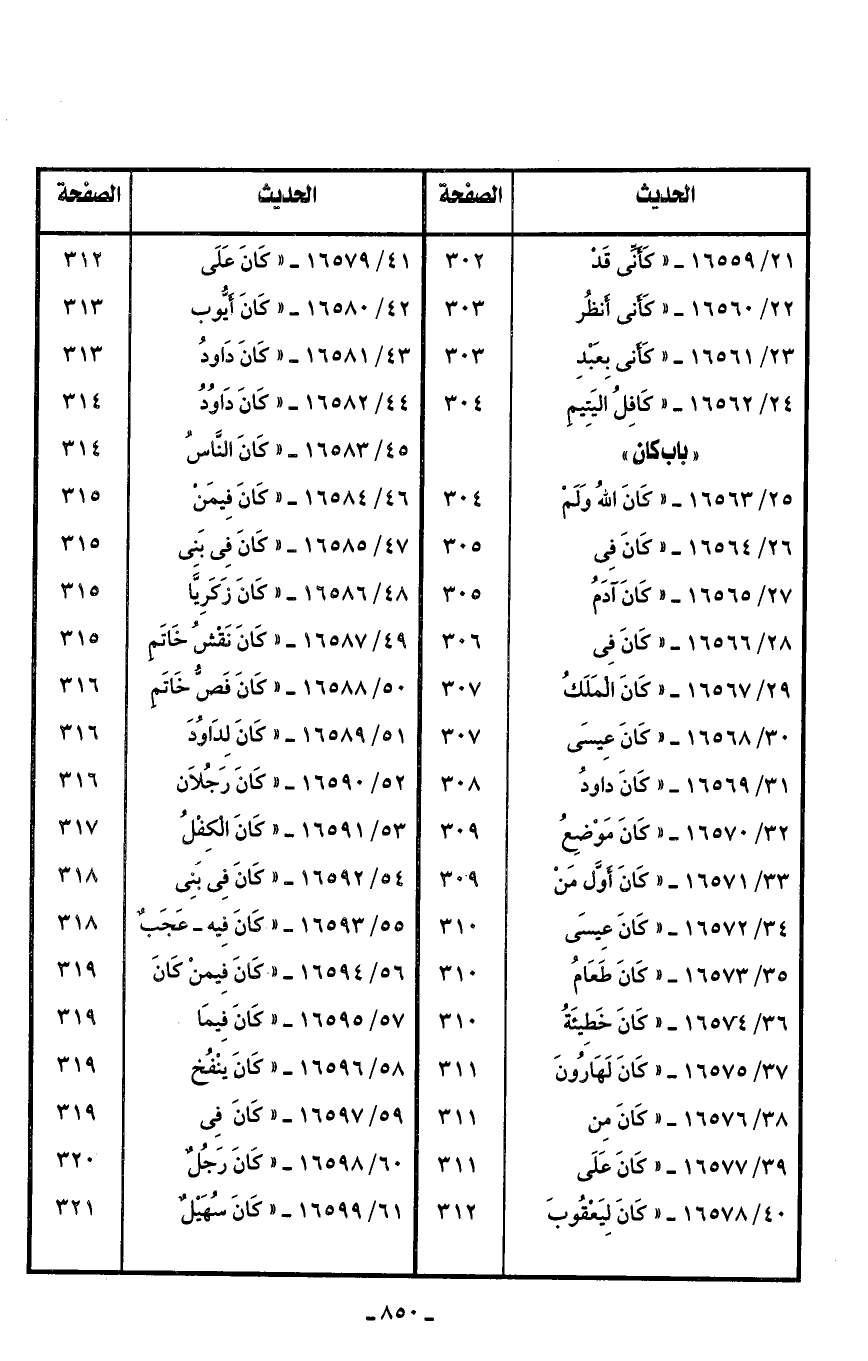 الحديث الصفحة الحديث الصفحة
٢١/ ١٦٥٥٩ ـ « كَأَنِّى قَدْ ٣٠٢ ٤١/ ١٦٥٧٩ ـ « كَانَ عَلَى ٣١٢
٢٢/ ١٦٥٦٠ ـ « كَأَنى أَنظُر ٣٠٣ ٤٢/ ١٦٥٨٠ ـ « كَانَ أَيُّوب ٣١٣
٢٣/ ١٦٥٦١ ـ « كَأَنى بِعَبْدِ ٣٠٣ ٤٣/ ١٦٥٨١ ـ « كَانَ دَاودُ ٣١٣
٢٤/ ١٦٥٦٢ ـ « كَافِلُ اليَتِيمِ ٣٠٤ ٤٤/ ١٦٥٨٢ ـ « كَانَ دَاوُدُ ٣١٤
« باب كان » ٤٥/ ١٦٥٨٣ ـ « كَانَ النَّاسُ ٣١٤
٢٥/ ١٦٥٦٣ ـ « كَانَ اللهُ وَلَمْ ٣٠٤ ٤٦/ ١٦٥٨٤ ـ « كَانَ فِيمَنْ ٣١٥
٢٦/ ١٦٥٦٤ ـ « كَانَ فِى ٣٠٥ ٤٧/ ١٦٥٨٥ ـ « كَانَ فِى بَنِى ٣١٥
٢٧/ ١٦٥٦٥ ـ « كَانَ آدَمُ ٣٠٥ ٤٨/ ١٦٥٨٦ ـ « كَانَ زَكَرِيَّا ٣١٥
٢٨/ ١٦٥٦٦ ـ « كَانَ فِى ٣٠٦ ٤٩/ ١٦٥٨٧ ـ « كَانَ نَقْشُ خَاتَمِ ٣١٥
٢٩/ ١٦٥٦٧ ـ « كَانَ الْمَلَكُ ٣٠٧ ٥٠/ ١٦٥٨٨ ـ « كَانَ فَصُّ خَاتَمِ ٣١٦
٣٠/ ١٦٥٦٨ ـ « كَانَ عِيسَى ٣٠٧ ٥١/ ١٦٥٨٩ ـ « كَانَ لِدَاوُدَ ٣١٦
٣١/ ١٦٥٦٩ ـ « كَانَ داودُ ٣٠٨ ٥٢/ ١٦٥٩٠ ـ « كَانَ رَجُلاَن ٣١٦
٣٢/ ١٦٥٧٠ ـ « كَانَ مَوْضِعُ ٣٠٩ ٥٣/ ١٦٥٩١ ـ « كَانَ الْكِفْلُ ٣١٧
٣٣/ ١٦٥٧١ ـ « كَانَ أَوَّل مَنْ ٣٠٩ ٥٤/ ١٦٥٩٢ ـ « كَانَ فِى بَنِى ٣١٨
٣٤/ ١٦٥٧٢ ـ « كَانَ عِيسَى ٣١٠ ٥٥/ ١٦٥٩٣ ـ « كَانَ فِيه ـ عَجَبٌ ٣١٨
٣٥/ ١٦٥٧٣ ـ « كَانَ طَعَامُ ٣١٠ ٥٦/ ١٦٥٩٤ ـ « كَانَ فِيمنْ كَانَ ٣١٩
٣٦/ ١٦٥٧٤ ـ « كَانَ خَطِيئَةُ ٣١٠ ٥٧/ ١٦٥٩٥ ـ « كَانَ فِيمَا ٣١٩
٣٧/ ١٦٥٧٥ ـ « كَانَ لَهَارُونَ ٣١١ ٥٨/ ١٦٥٩٦ ـ « كَانَ يَنْفُخ ٣١٩
٣٨/ ١٦٥٧٦ ـ « كَانَ مِن ٣١١ ٥٩/ ١٦٥٩٧ ـ « كَانَ فِى ٣١٩
٣٩/ ١٦٥٧٧ ـ « كَانَ عَلَى ٣١١ ٦٠/ ١٦٥٩٨ ـ « كَانَ رَجُلٌ ٣٢٠
٤٠/ ١٦٥٧٨ ـ « كَانَ لِيَعْقُوبَ ٣١٢ ٦١/ ١٦٥٩٩ ـ « كَانَ سُهَيْلٌ ٣٢١
ـ ٨٥٠ ـ